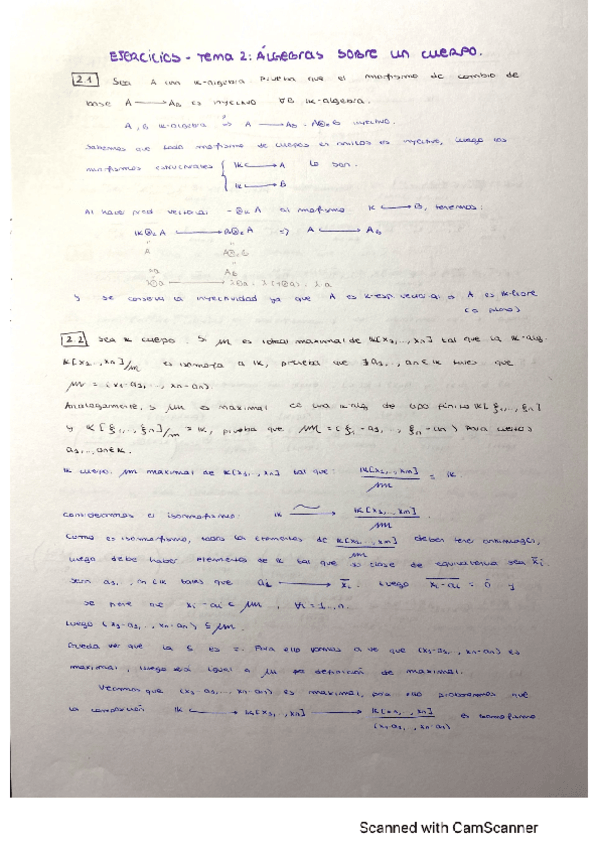 EJERCICIOS - TEMA 2: ÁLGEBRAS SOBRE UN CUERPO.
2.1 Sea A una K-álgebra. Prueba que el morfismo de cambio de
base A → A_B es inyectivo ∀B K-álgebra.
A, B K-álgebra ⇒ A → A_B = A⊗_K B inyectivo.
Sabemos que todo morfismo de cuerpos en anillos es inyectivo, luego los
morfismos estructurales { K → A lo son.
K → B
Al hacer prod vectorial -⊗_K A al morfismo K → B, tenemos:
K⊗_K A → B⊗_K A ⇒ A → A_B
A A⊗_K B
A_B
y se conserva la inyectividad ya que A es K-esp vectorial o A es K-libre
(o plano)
2.2 Sea K cuerpo. Si m es ideal maximal de K[x1,..,xn] tal que la K-álg.
K[x1,..,xn]/m es isomorfa a K, prueba que ∃ a1,..,an∈K tales que
m = (x1-a1,..,xn-an).
Análogamente, si m es maximal de una K-álg de tipo finito K[ξ1,..,ξn]
y K[ξ1,..,ξn]/m = K, prueba que m = (ξ1-a1,..,ξn-an) para ciertos
a1,..,an∈K.
K cuerpo. m maximal de K[x1,..,xn] tal que: K[x1,..,xn]/m = K
Consideramos el isomorfismo: K → K[x1,..,xn]/m
Como es isomorfismo, todos los elementos de K[x1,..,xn]/m deben tener antiimagen,
luego debe haber elementos de K tal que su clase de equivalencia sea x̄i.
Sean a1,..,an∈K tales que ai → x̄i. Luego x̄i-ai = 0̄ y
se tiene que xi-ai ∈ m, ∀i=1..n.
Luego (x1-a1,..,xn-an) ⊆ m.
Queda ver que la ⊆ es =. Para ello vamos a ver que (x1-a1,..,xn-an) es
maximal, luego será igual a m por definición de maximal.
Veamos que (x1-a1,..,xn-an) es maximal, para ello probaremos que
la composición K → K[x1,..,xn] → K[x1,..,xn]/(x1-a1,..,xn-an) es isomorfismo
Scanned with CamScanner